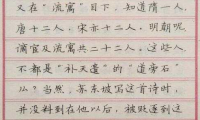 又在“流寓”目下，知道隋一人，
唐十二人，宋亦十二人，明朝呢，
谪宦及流寓共二十二人，这些人，
不都是“补天遗”的“道旁石”
么？当然，苏东坡写这首诗时，
并没料到在他以后，被贬逐到这